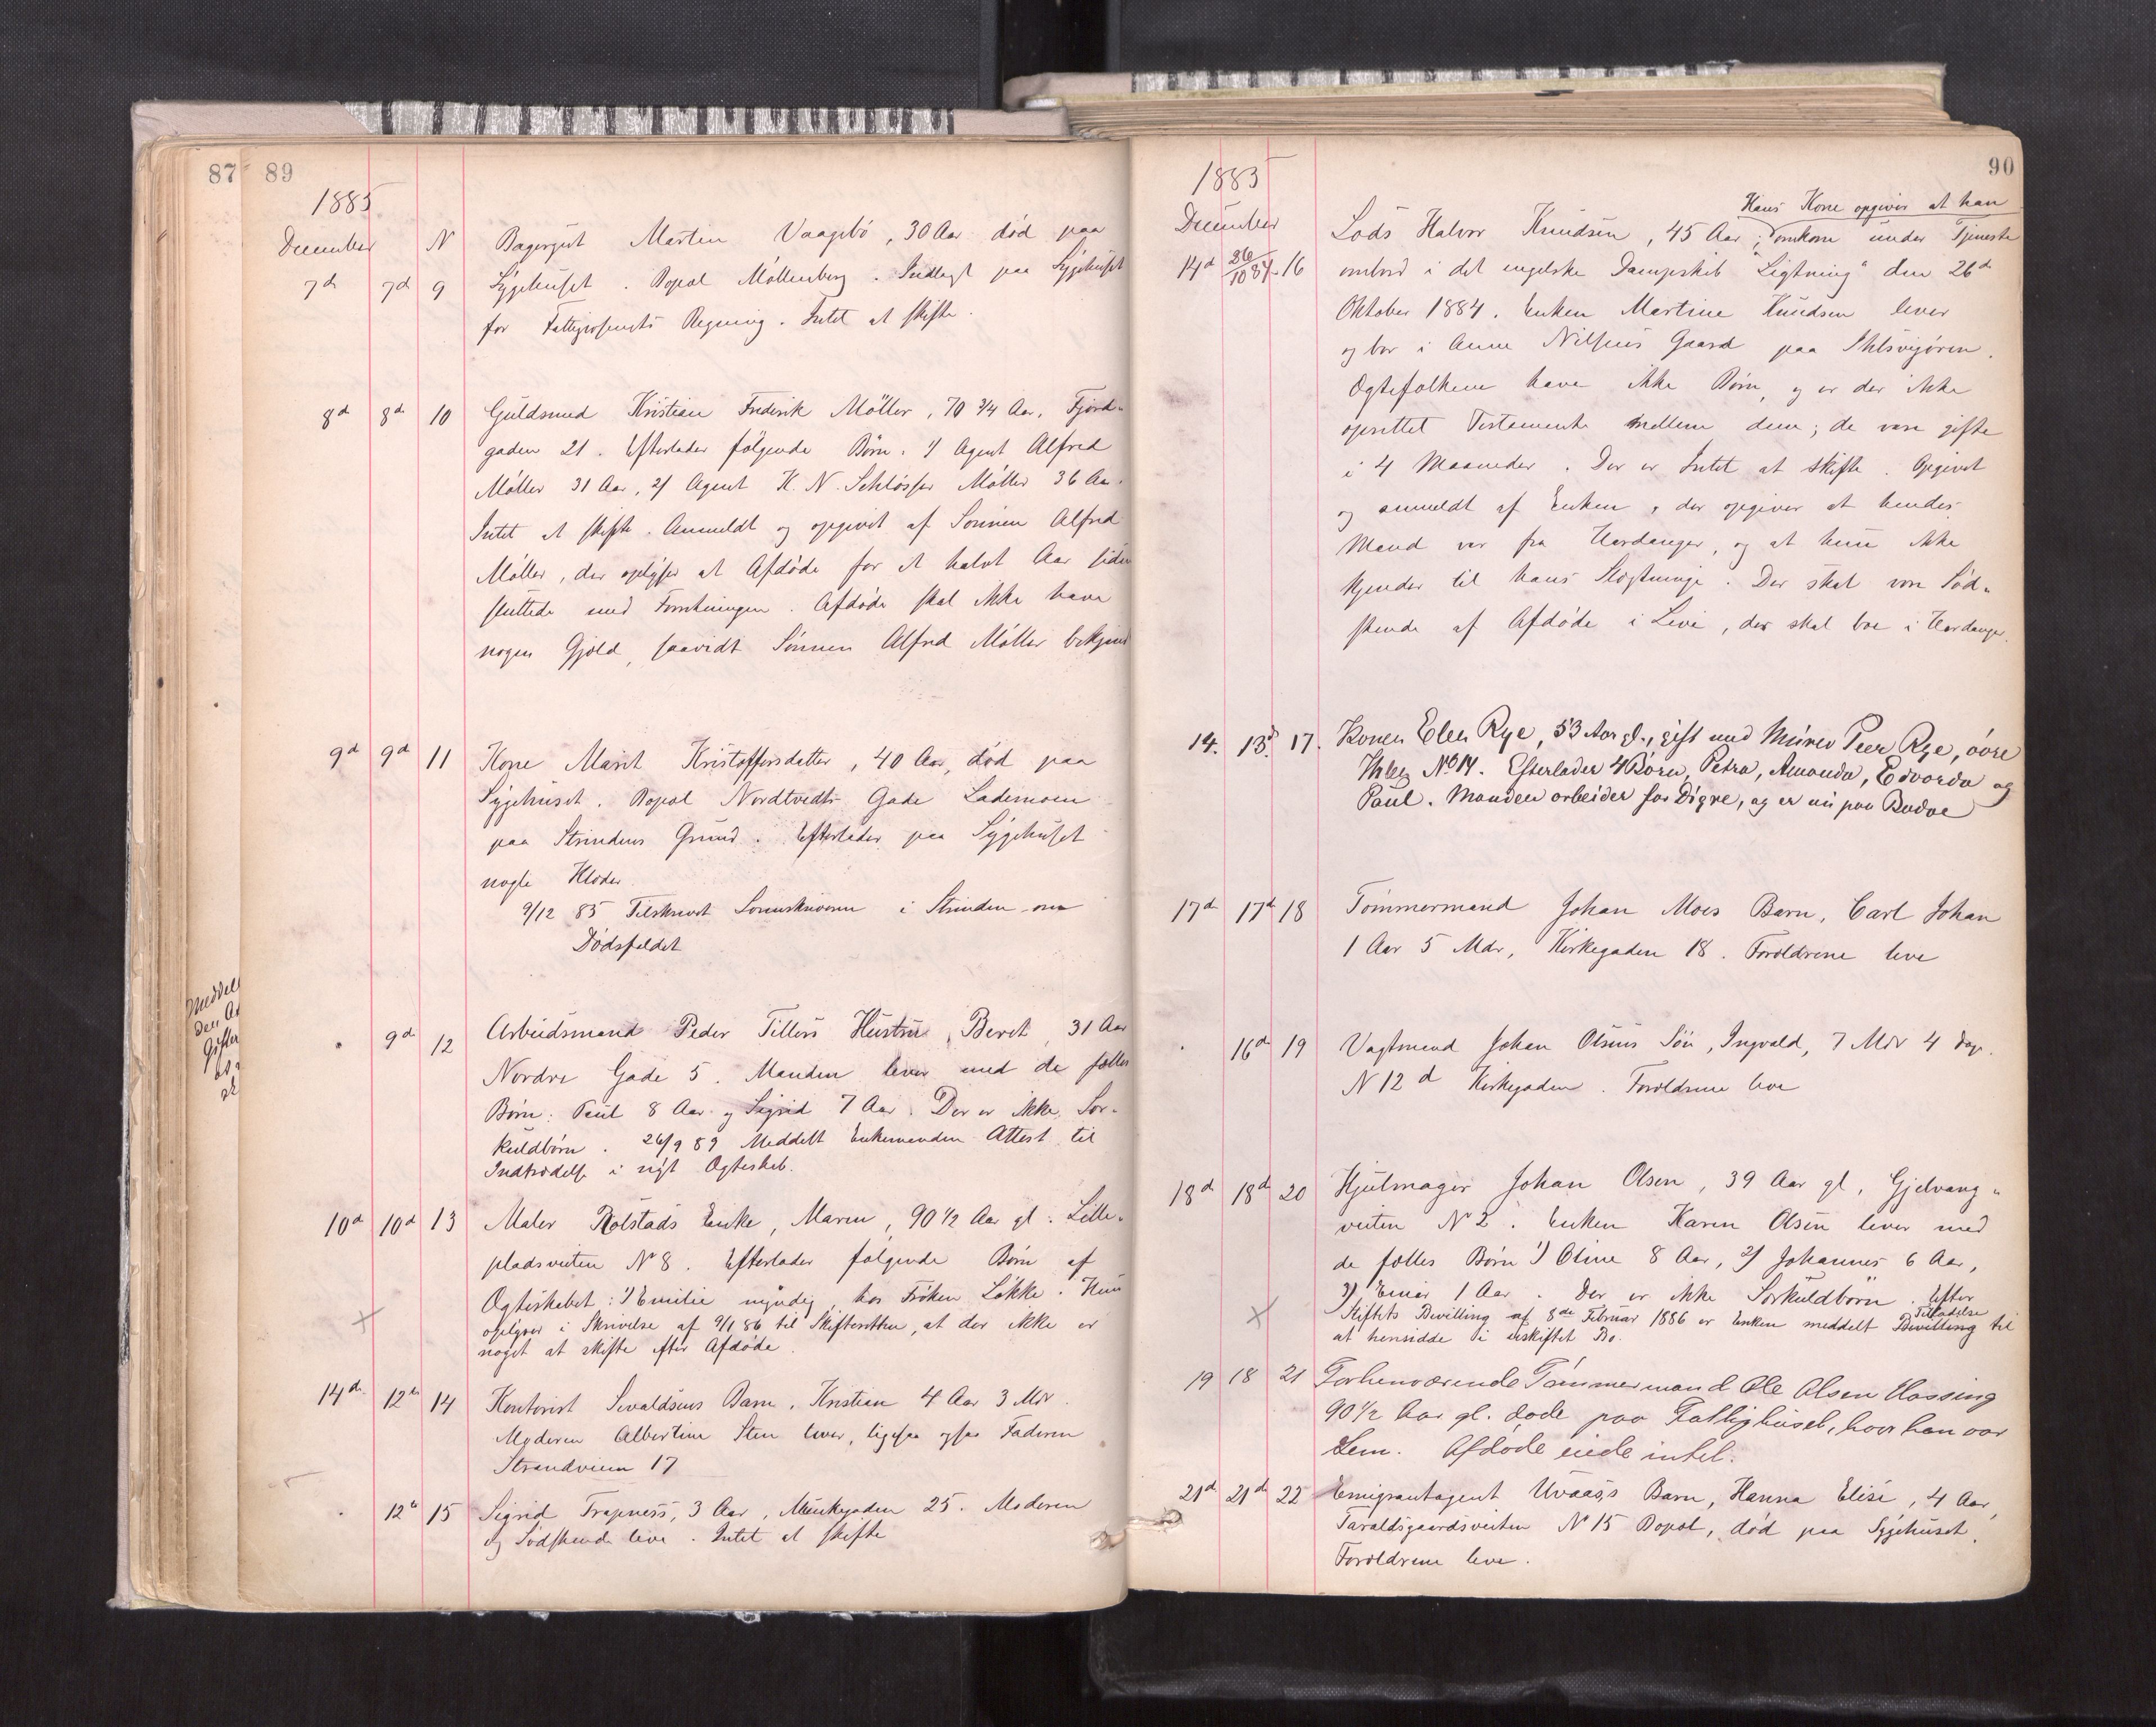 87 89
1885
December N Bagersvent Marten Vaagsbö, 30 Aar død paa
7d 7d 9 Sygehuset. Bopæl Möllenberg. Indlagt paa Sygehuset
for Fattigvæsenets Regning. Intet at skifte.
8d 8d 10 Guldsmed Kristian Fredrik Möller, 70 3/4 Aar, Fjord-
gaden 21. Efterlader fölgende Börn. 1/ Agent Alfred
Möller 31 Aar, 2/ Agent K. N. Schlösser Möller 36 Aar.
Intet at skifte. Anmeldt og opgivet af Sönnen Alfred
Möller, der oplyser at Afdöde for et halvt Aar siden
sluttede med Forretningen. Afdöde skal ikke have
nogen Gjæld, saavidt Sönnen Alfred Möller bekjend
9d 9d 11 Kone Marit Kristoffersdatter, 40 Aar, død paa
Sygehuset. Bopæl Nordtvedts Gade Lademoen
paa Strindens Grund. Efterlader paa Sygehuset
nogle Klæder.
9/12 85 Tilskrevet Sorenskriveren i Strinden om
Dödsfaldet
Meddelt
den At
Gifter
9d 12 Arbeidsmand Peder Tillers Hustru, Beret, 31 Aar
Nordre Gade 5. Manden lever med de fælles
Börn: Paul 8 Aar og Sigrid 7 Aar. Der er ikke Sær-
kuldbörn. 26/9 89 Meddelt Enkemanden Attest til
Indtrædelse i nyt Ægteskab.
10d 10d 13 Maler Rolstads Enke, Maren, 90 1/2 Aar gl. Lille-
pladsveiten N 8. Efterlader fölgende Börn af
Ægteskabet: 1/ Emilie myndig, hos Fröken Lökke. Hun
opgiver i Skrivelse af 9/1 86 til Skifteretten, at der ikke er
noget at skifte efter Afdöde.
14d 12te 14 Kontorist Sivaldsens Barn, Kristian 4 Aar 3 Mdr.
Moderen Albertine Sten lever, ligesaa ogsaa Faderen
Strandveien 17
12te 15 Sigrid Trapness, 3 Aar, Munkegaden 25. Moderen
og Södskende leve. Intet at skifte
90
1885
Hans Kone opgiver at han
December Lods Halvor Knudsen, 45 Aar; omkom under Tjeneste
14d 26/10 84 16 ombord i det engelske Dampskib "Ligtning" den 26de
Oktober 1884. Enken Martine Knudsen lever
og bor i Anne Nilsens Gaard paa Ihlsvigören.
Ægtefolkene have ikke Börn, og er der ikke
oprettet Testamente mellem dem; de vare gifte
i 4 Maaneder. Der er Intet at skifte. Opgivet
og anmeldt af Enken, der opgiver at hendes
Mand var fra Hardanger, og at hun ikke
kjender til hans Slægtninge. Der skal være Söd-
skende af Afdöde i Live, der skal boe i Hardanger.
14. 13d 17. Konen Elen Rye, 53 Aar gl., gift med Murer Peer Rye, övre
Ihlen No 14. Efterlader 4 Börn, Petra, Amanda, Edvarda og
Paul. Manden arbeider for Digre, og er nu paa Bodøe
17d 17d 18 Tömmermand Johan Moes Barn, Carl Johan
1 Aar 5 Mdr, Kirkegaden 18. Forældrene leve
16d 19 Vagtmand Johan Olsens Sön, Ingvald, 7 Mdr 4 Dag.
N 12 d Kirkegaden. Forældrene leve
18d 18d 20 Hjulmager Johan Olsen, 39 Aar gl, Gjelvang-
veiten N 2. Enken Karen Olsen lever med
de fælles Börn 1) Oline 8 Aar, 2/ Johannes 6 Aar,
3/ Einar 1 Aar. Der er ikke Særkuldbörn. Efter
Stiftets Bevilling af 8de Februar 1886 er Enken meddelt Bevilling Tilladelse til
at hensidde i uskiftet Bo.
19 18 21 Forhenværende Tömmermand Ole Olsen Hassing
90 1/2 Aar gl. døde paa Fattighuset, hvor han var
Lem. Afdøde eiede intet.
21d 21d 22 Emigrantagent Uvaas's Barn, Hanna Elise, 4 Aar,
Taraldsgaardsveiten N 15 Bopæl, död paa Sygehuset.
Forældrene leve.